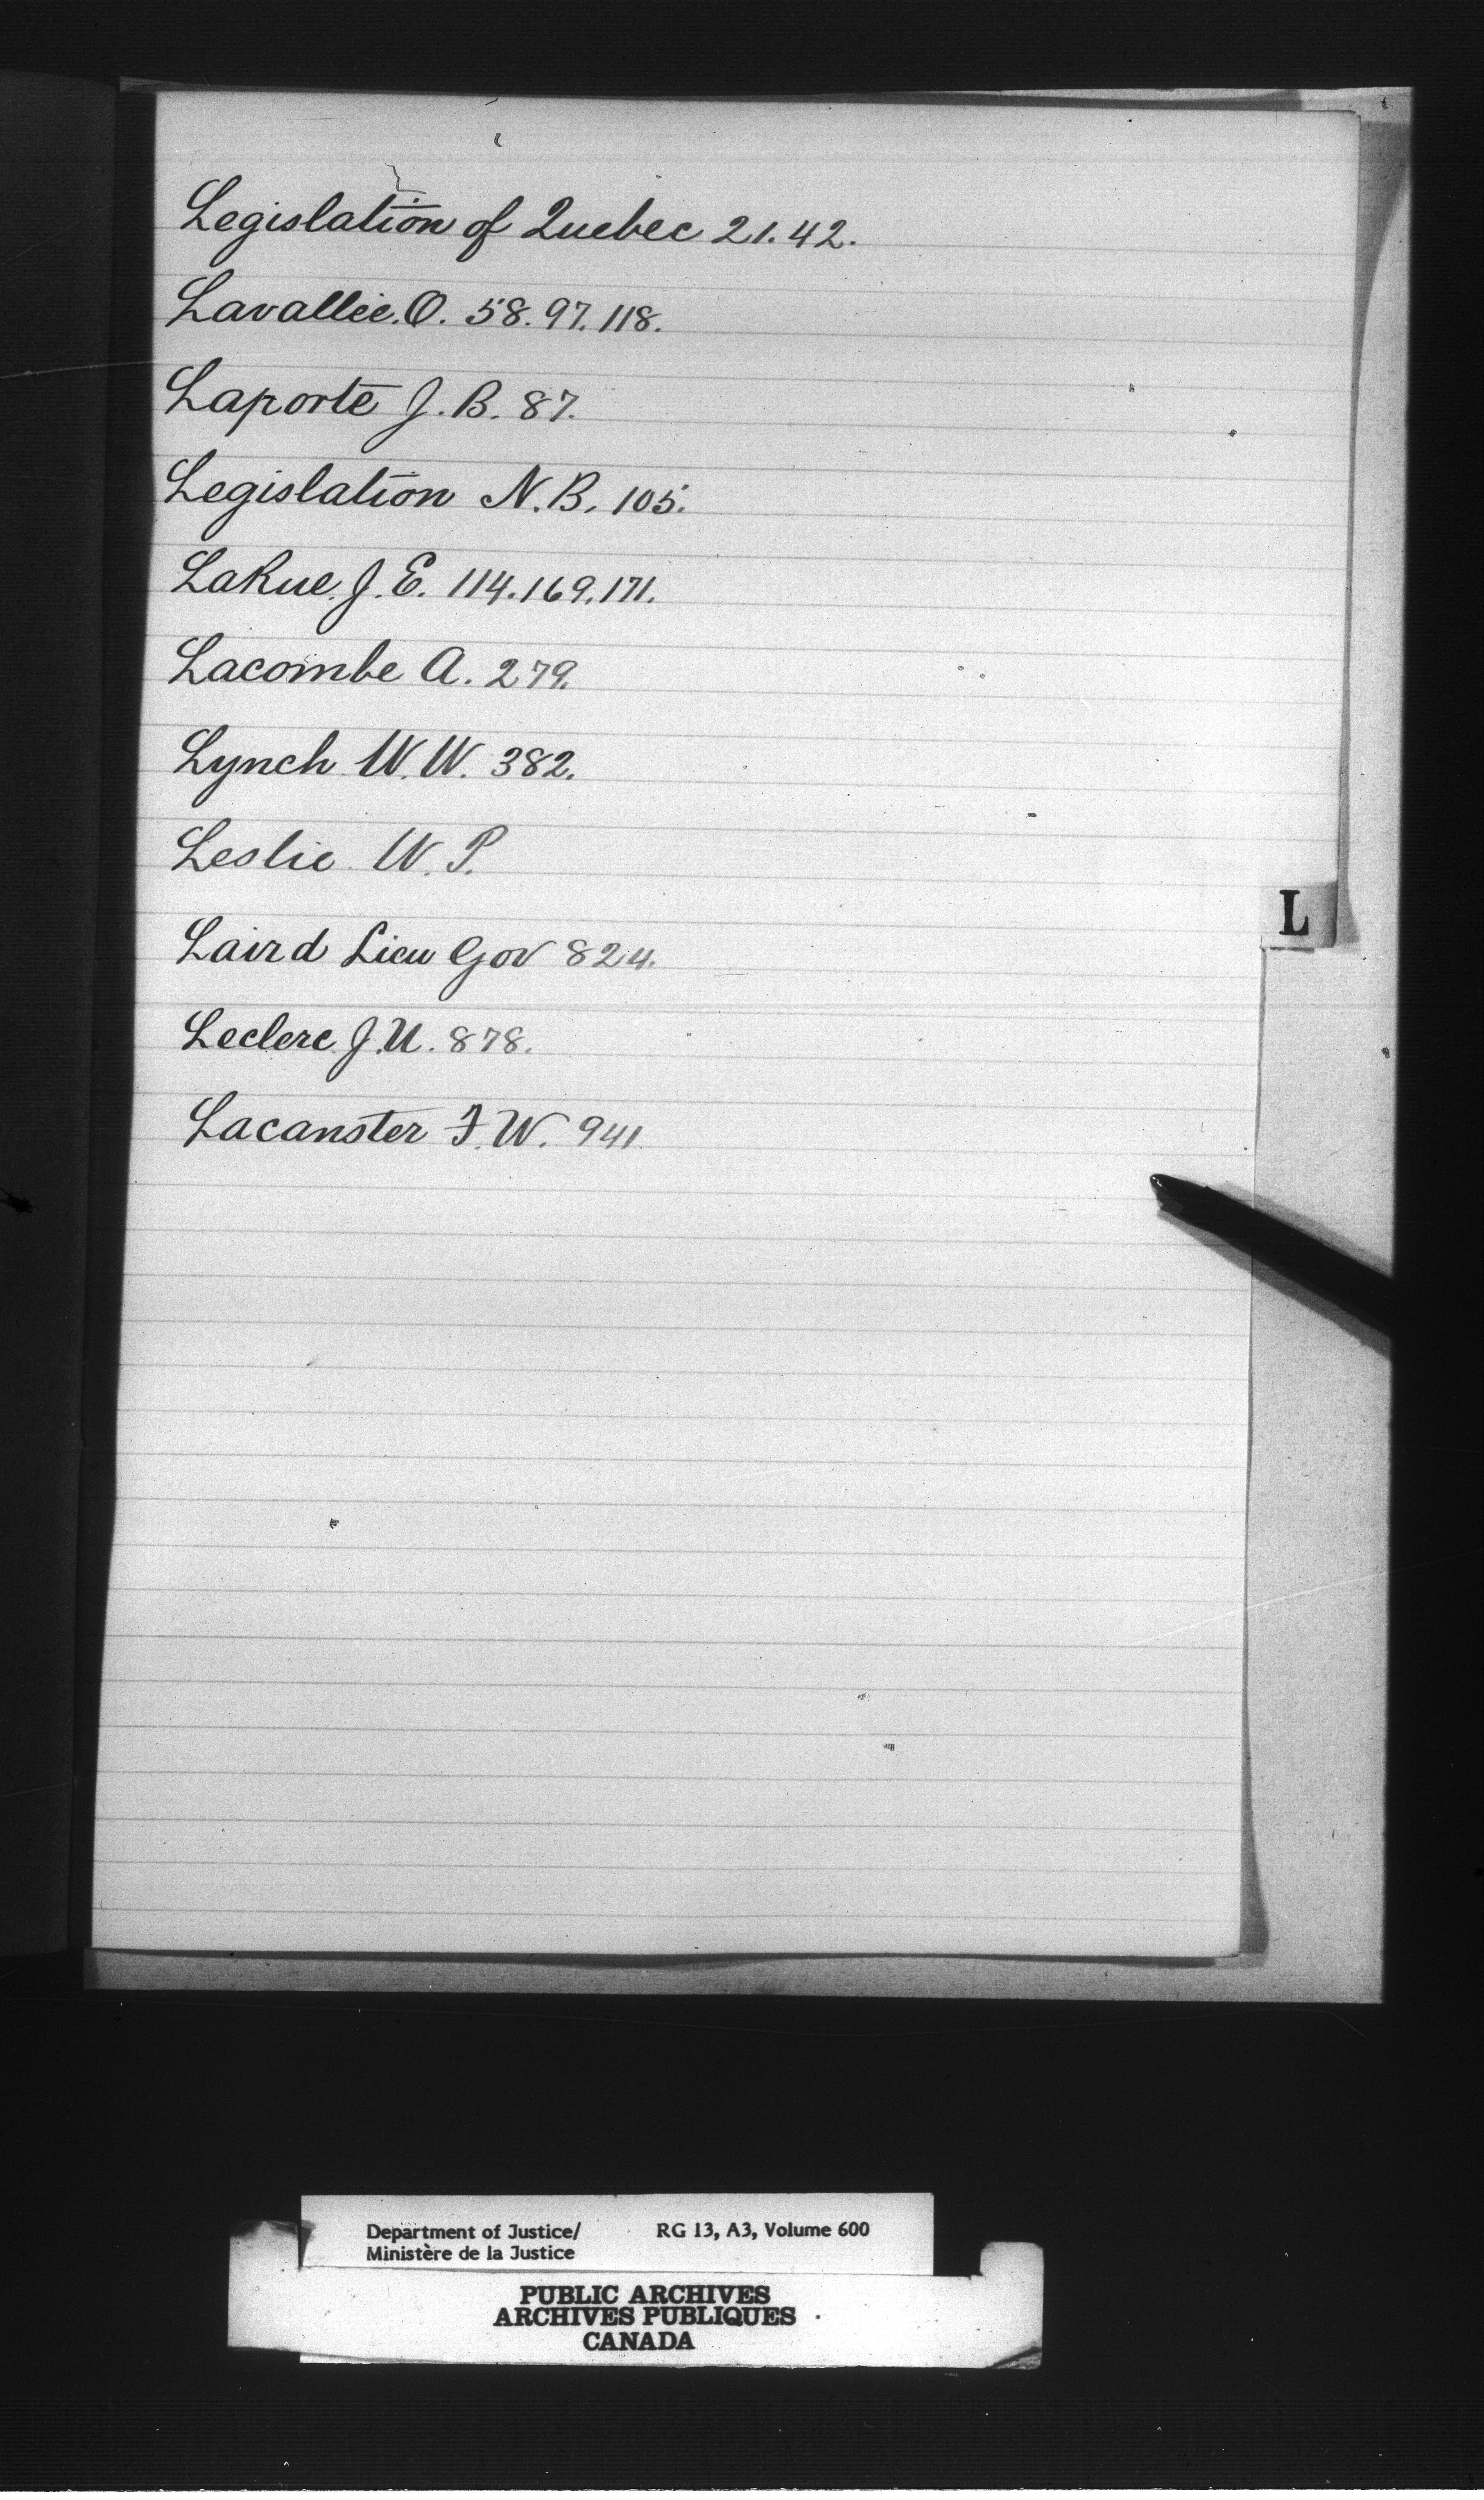 Legislation of Quebec 21.42.
Lavallée. O. 58.97.118.
Laporte J. B. 87.
Legislation N.B. 105.
LaRue. J. E. 114.169.171.
Lacombe A. 279.
Lynch W. W. 382.
Leslie W. P.
L
Laird Lieu Gov 824.
Leclerc J. U. 878.
Lacanster F. W. 941.
Department of Justice/ RG 13, A3, Volume 600
Ministère de la Justice
PUBLIC ARCHIVES
ARCHIVES PUBLIQUES
CANADA